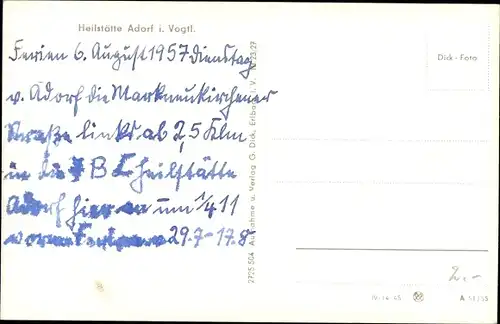 Heilstätte Adorf i. Vogtl.
Ferien 6. August 1957 Dienstag
v. Adorf die Markneukirchener
Straße links ab 2,5 Klm
in die TBC heilstätte
Adorf hier an um 1/4 11
29.7-17.8
Aufnahme u. Verlag G. Dick, Erlbach i. V.
Dick-Foto
2.-
IV-14-45
A 511/55